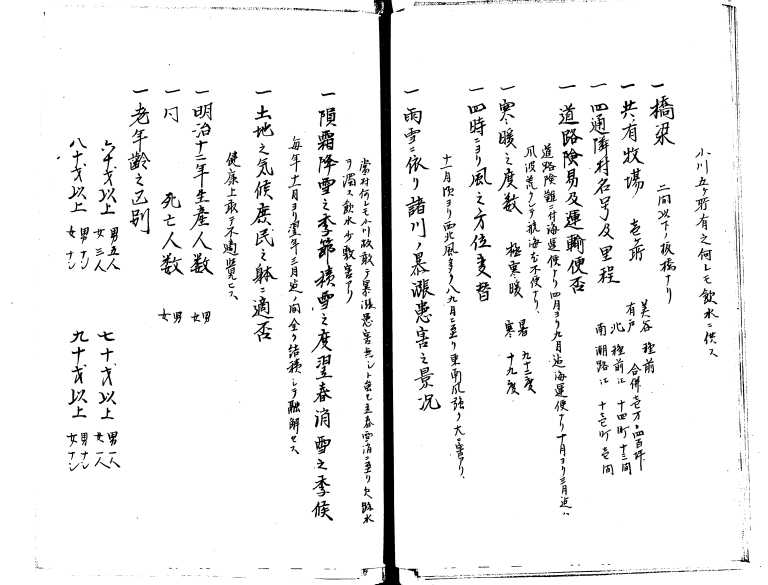 小川五ヶ所有之何レモ飲水ニ供ス
一 橋梁 二間以下ノ板橋ナリ
一 共有牧場 壱ヶ所 美谷 種前 有戸 合併壱万四百坪
一 四通隣村名号及里程 北 種前江 十四町十三間 南 潮路江 十壱町壱間
一 道路険易及運輸便否
道路険難ニ付海運便ナリ四月ヨリ九月迄海運便ナリ十月ヨリ三月迄ハ
風波荒クシテ航海ニ不便ナリ、
一 寒暖之度数 極寒暖 暑 九十二度 寒 十九度
一 四時ニヨリ風之方位変替
十一月頃ヨリ西北風多ク八九月ニ至リ東南風強ク大ニ害アリ、
一 雨雪ニ依リ諸川ノ暴漲患害之景況
当村何レモ小川故敢テ暴漲患害無シト雖モ立春雪消ニ至リ
ヲ濁ス飲水少敷害アリ
一 隕霜降雪之季節積雪之度翌春消雪之季候
毎年十一月ヨリ翌年三月迄ノ間全ク結積シテ融解セス
一 土地之気候庶民之躰ニ適否
健康上敢テ不適覚ヒス
一 明治十二年生産人数 男 女
一 同 死亡人数 男 女
一 老年齢之区別
六十才以上 男五人 女三人 七十才以上 男一人 女一人
八十才以上 男ナシ 女ナシ 九十才以上 男ナシ 女ナシ